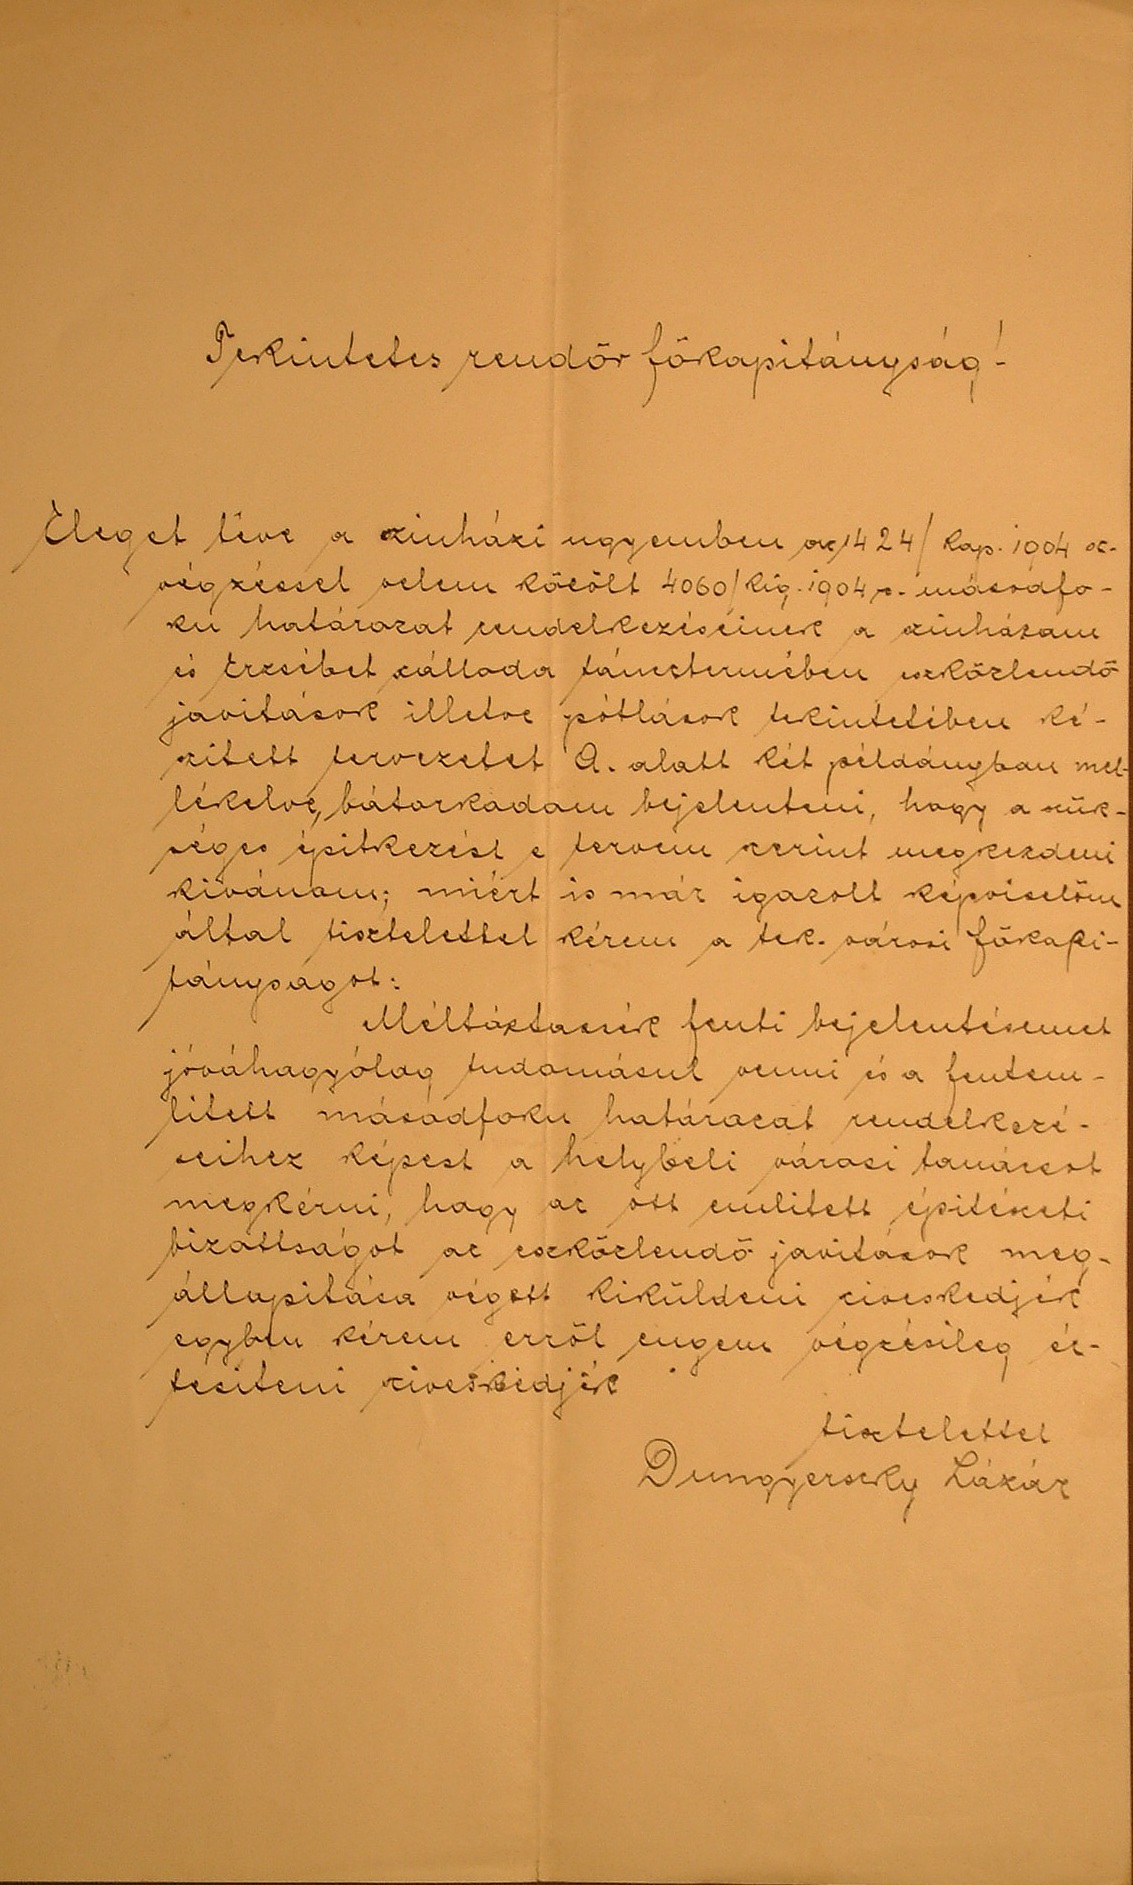 Tekintetes rendőr főkapitányság!
Eleget téve a szinházi ugyemben az 1424/kap. 1904 sz.
végzéssel velem közölt 4060/kig. 1904 sz. másodfo-
ku határozat rendelkezéseinek a szinházam
és Erzsébet szálloda táncztermében eszközlendő
javitások illetve pótlások tekintetében ké-
szitett tervezetet A. alatt két példányban mel-
lékelve, bátorkodom bejelenteni, hogy a szük-
séges épitkezést e tervem szerint megkezdeni
kivánom; miért is már igazolt képviselőm
által tisztelettel kérem a tek. városi főkapi-
tányságot:
Méltóztassék fenti bejelentésemet
jóváhagyólag tudomásul venni és a fentem-
litett másodfoku határozat rendelkezé-
seihez képest a helybeli városi tanácsot
megkérni, hogy az ott emlitett épitészeti
bizottságot az eszközlendő javitások meg-
állapitása végett kiküldeni sziveskedjék
egyben kérem erről engem végzésileg ér-
tesiteni sziveskedjék
tisztelettel
Dungyerszky Lázár